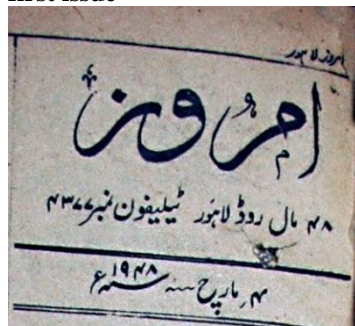 first issue
امروز لاہور
امروز
۴۸ مال روڈ لاہور ٹیلیفون نمبر ۴۳۷۷
۴ مارچ سنہ ۱۹۴۸ ء